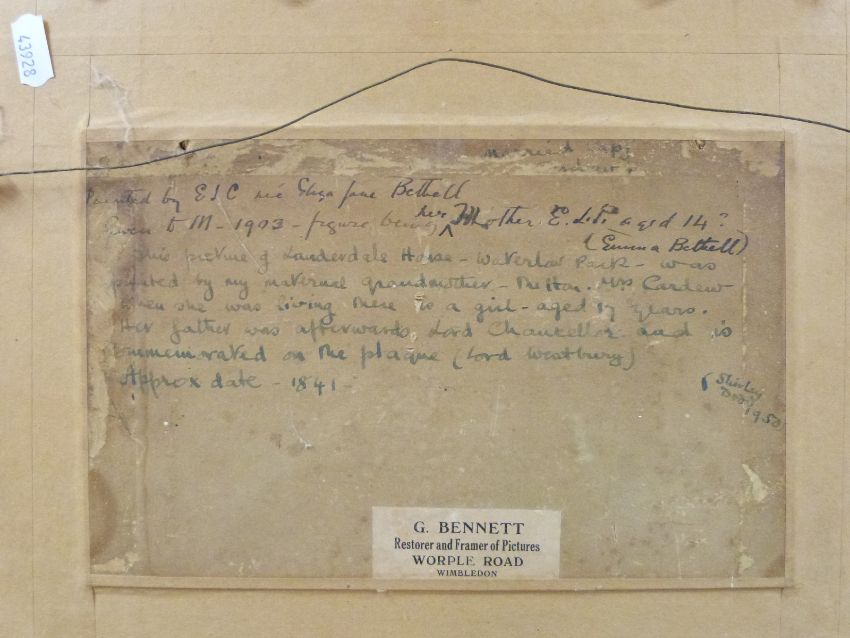 43928
Painted by EJC née Eliza Jane Bethell
Given to M - 1903 - figure being her Mother E. aged 14?
(Emma Bethell)
This picture of Lauderdale House - Waterlow Park - was
painted by my maternal grandmother - The Hon. Mrs Cardew
when she was living there as a girl - aged 17 years.
Her father was afterwards Lord Chancellor and is
commemorated on the plaque (Lord Westbury)
Approx date - 1841 -
Shirley
1950
G. BENNETT
Restorer and Framer of Pictures
WORPLE ROAD
WIMBLEDON